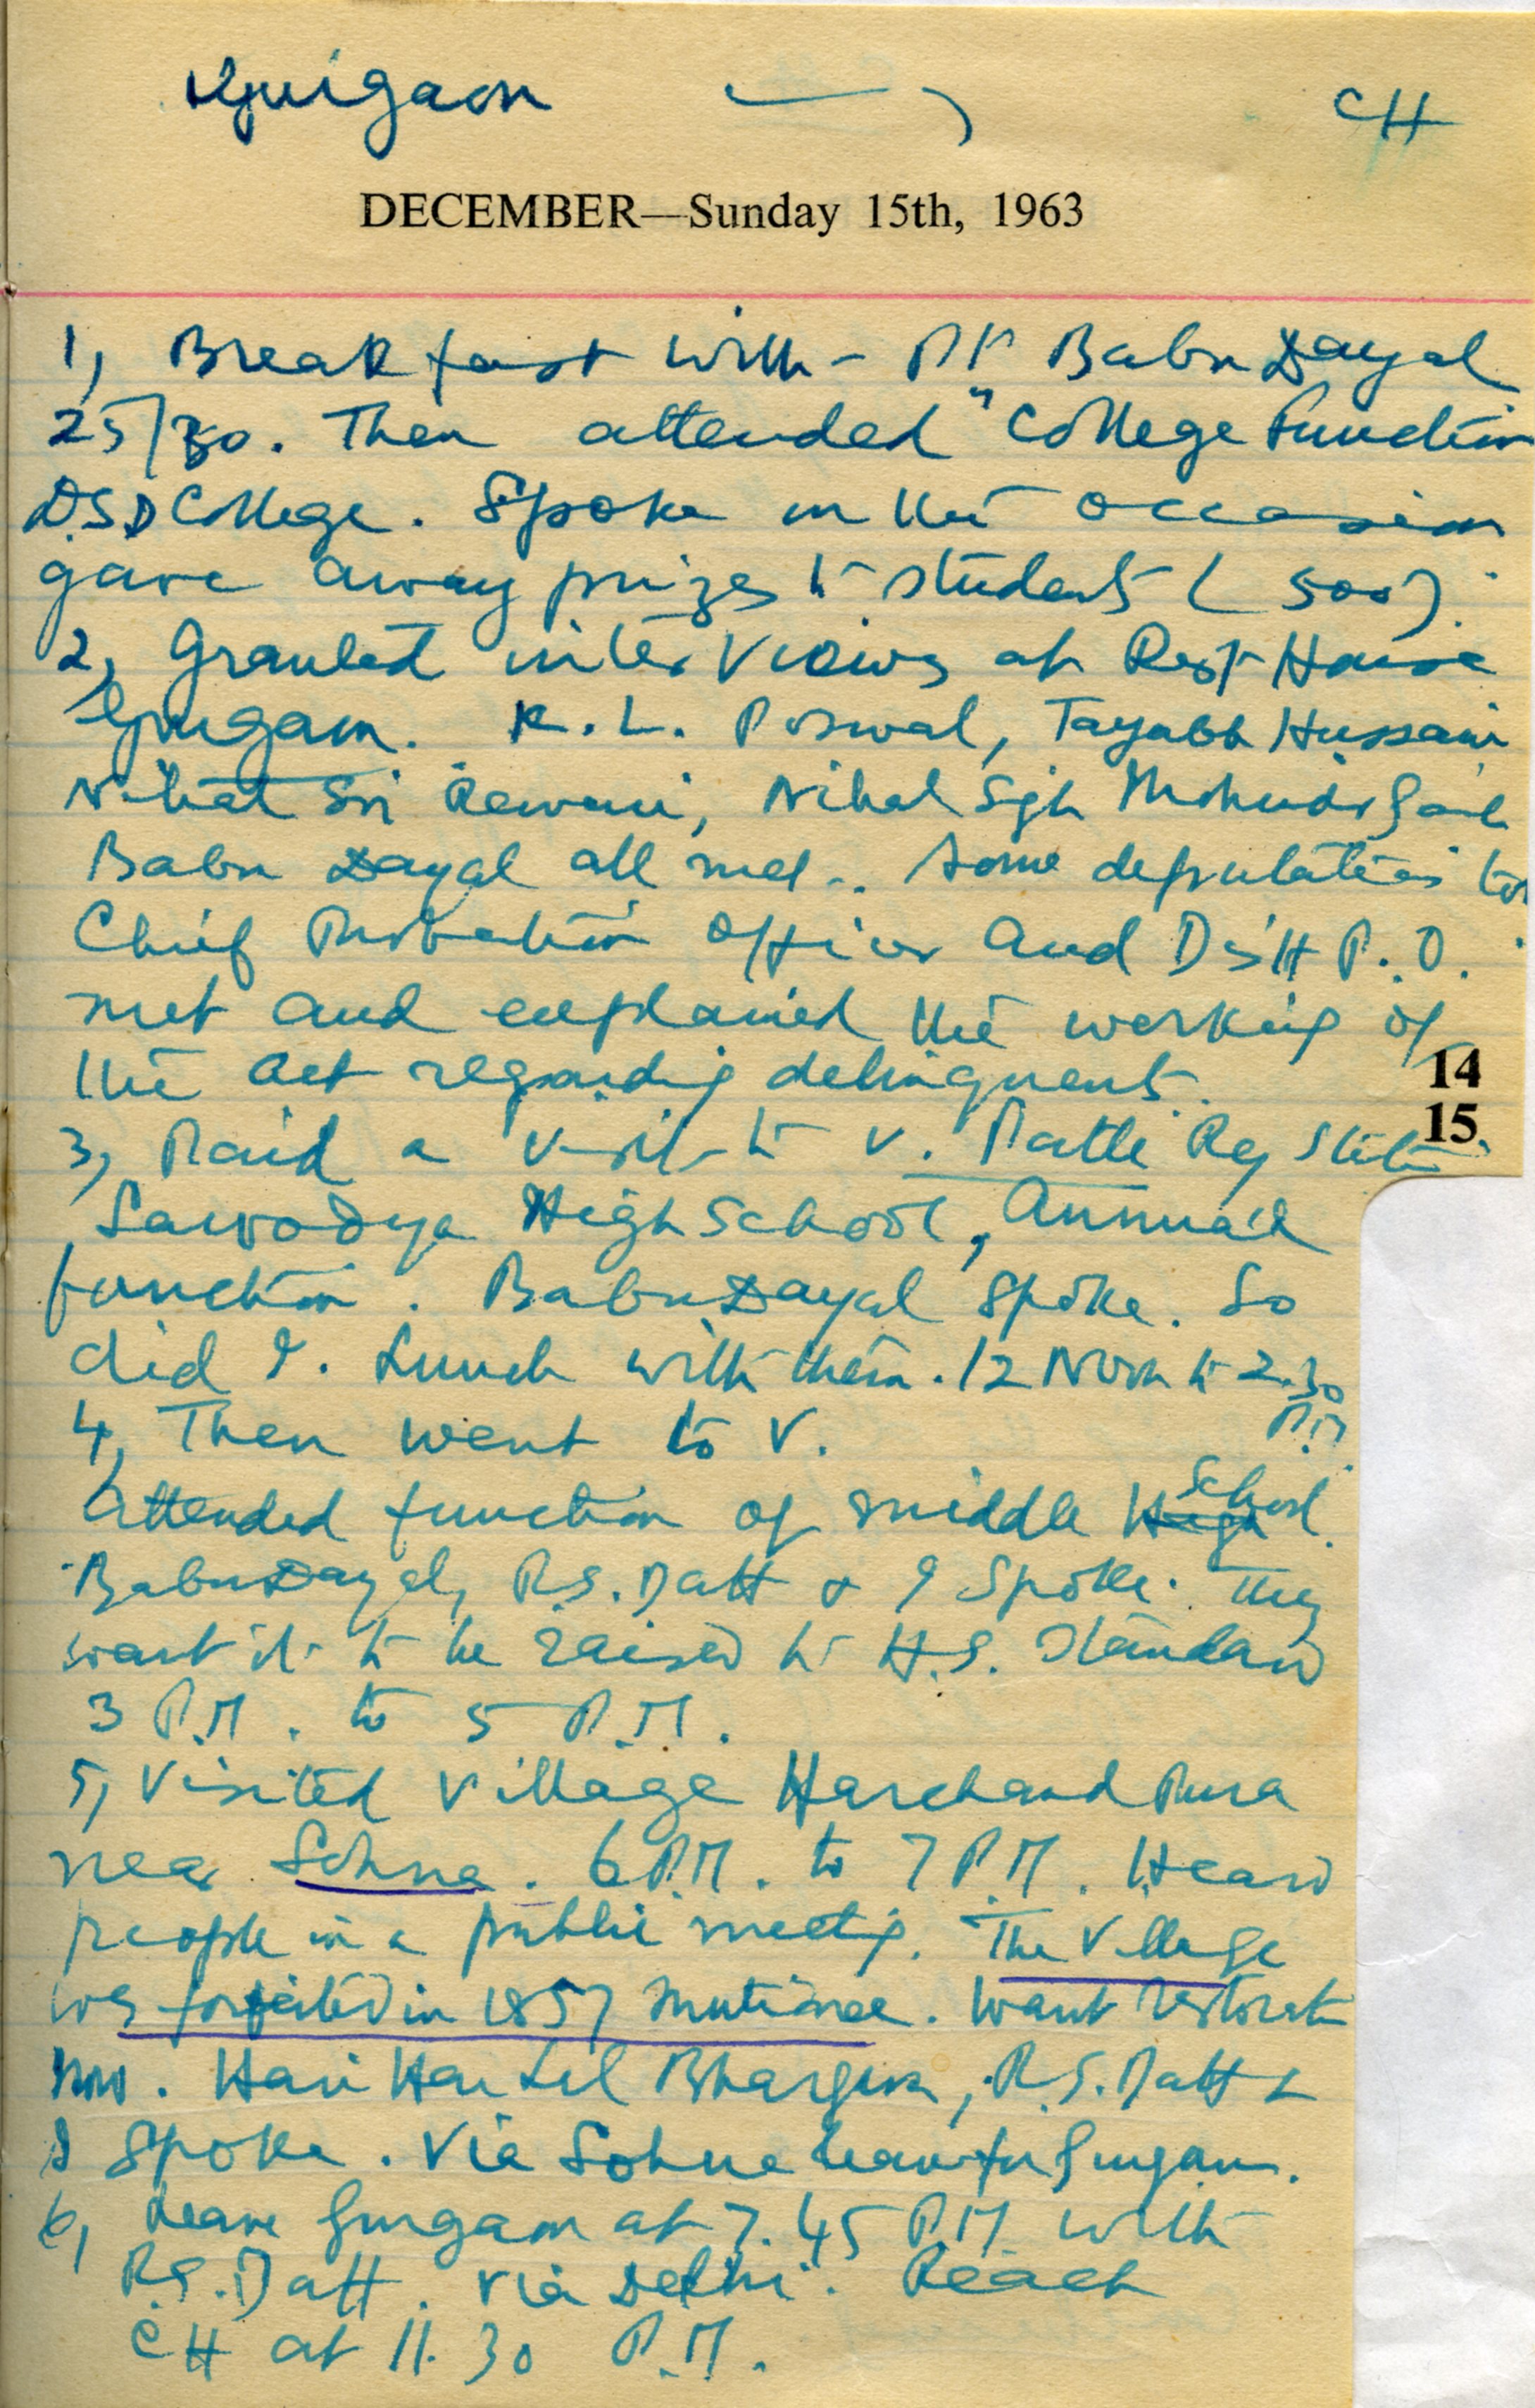 Gurgaon CH
DECEMBER—Sunday 15th, 1963
1, Breakfast with - Pt Babu Dayal
25/30. Then attended "College Function
DSD College. Spoke on the occasion
gave away prizes to students (500).
2, Granted interviews at Rest House
Gurgaon. K. L. Poswal, Tayabb Hussain
Sri Rewari, Nihal Sgh
Babu Dayal all met. Some deputations too
Chief Probation Officer and Distt P.O.
met and explained the working of
the act regarding delinquents.
14
15
3, Paid a visit to V. Patle Ry Station
Sarvodya High School, Annual
function. Babu Dayal spoke. So
did I. Lunch with them. 12 Noon to 2.30
P.M.
4, Then went to V.
School
Attended function of middle High.
Babu Dayal, R.S. Datt & I Spoke. They
want it to be raised to H.S. Standard
3 P.M. to 5 P.M.
5, Visited Village Harchandpura
near Sohna. 6 P.M. to 7 P.M. Heard
people in a public meetig. The Village
was forfeited in 1857 . Want restorat
now. Hari Har Lal Bhargva, R.S. Datt &
I Spoke. Via Sohna leave for Gurgaon.
6, Leave Gurgaon at 7.45 PM with
R.S. Datt. via Delhi. Reach
CH at 11.30 P.M.